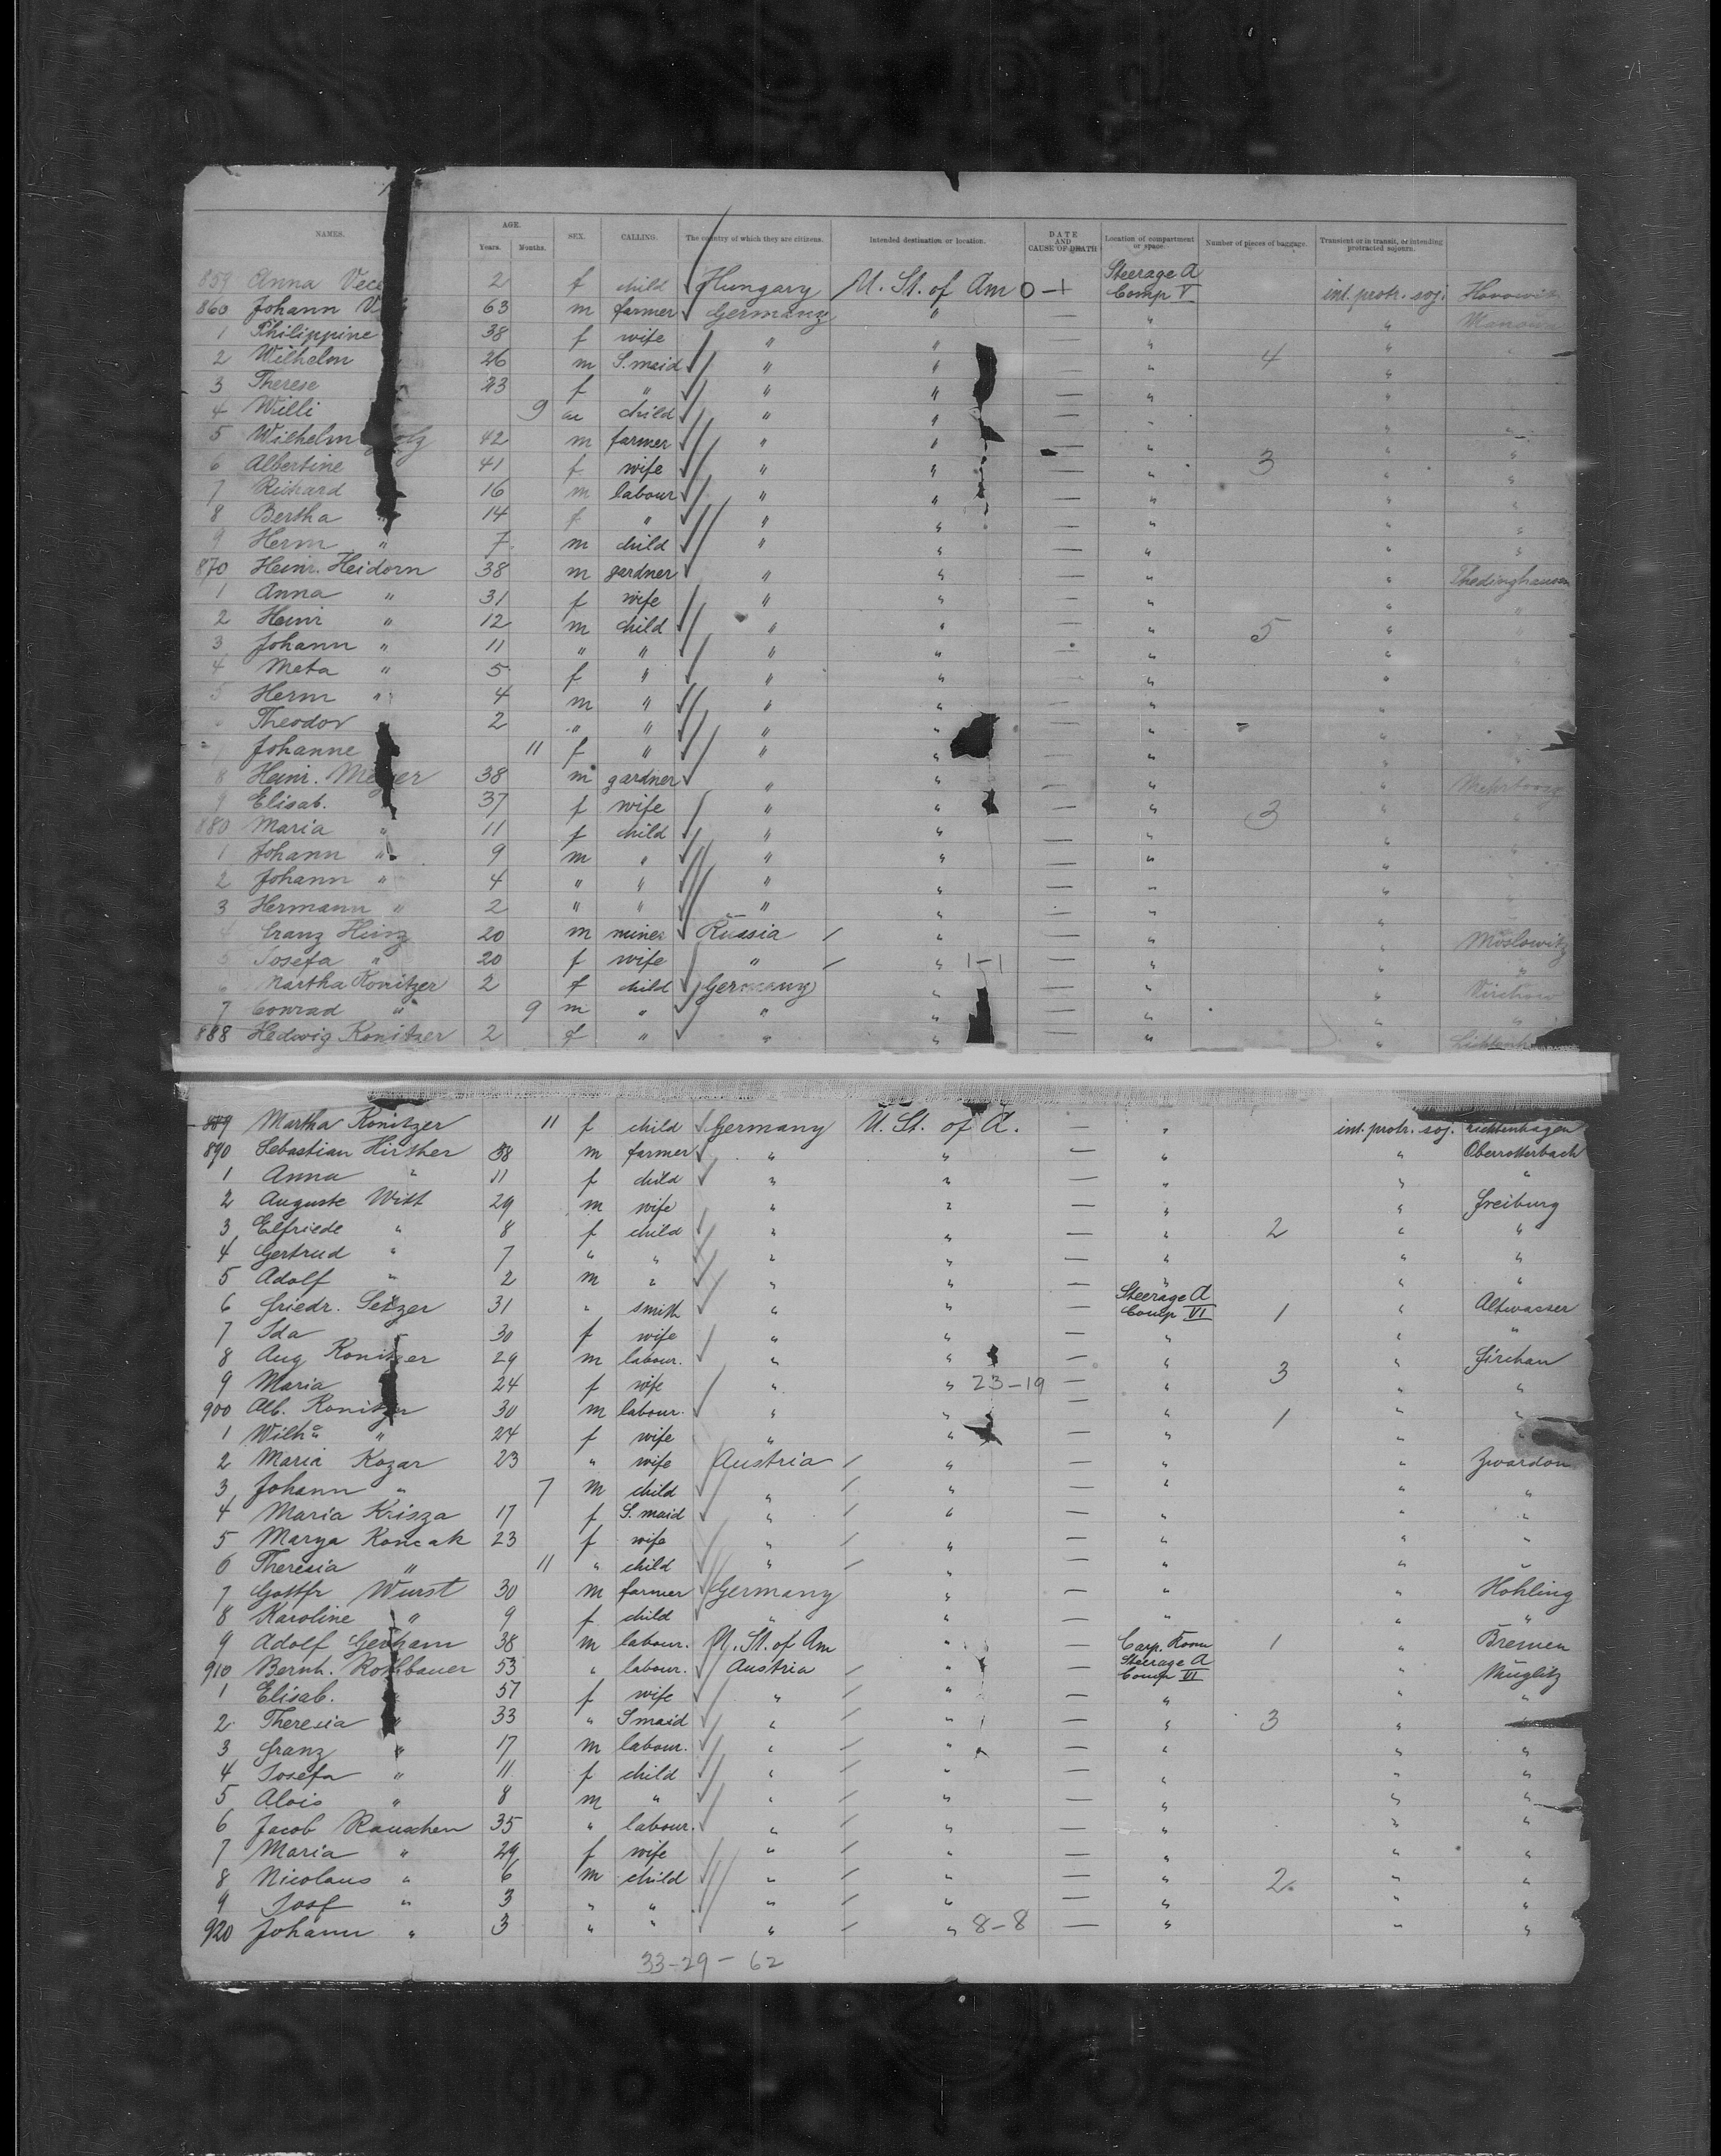 NAMES. AGE. Years. Months. SEX. CALLING. The country of which they are citizens. Intended destination or location. DATE AND CAUSE OF DEATH Location of compartment or space. Number of pieces of baggage. Transient or in transit, or intending protracted sojourn.
859 Anna 2 f child Hungary U. St. of Am 0 — 1 Steerage A Comp V int. protr. soj.
860 Johann 63 m farmer Germany " — " "
1 Philippine 38 f wife " " — " "
2 Wilhelm 26 m S. maid " " — " 4 "
3 Therese 23 f " " " — " "
4 Willi 9 child " " — " "
5 Wilhelm 42 m farmer " " — " " "
6 Albertine 41 f wife " " — " 3 " "
7 Richard 16 m labour " " — " " "
8 Bertha " 14 f " " " — " " "
9 Herm " 7 m child " " — " " "
870 Heinr. Heidorn 38 m gardner " " — " " Thedinghausen
1 Anna " 31 f wife " " — " " "
2 Heinr " 12 m child " " — " 5 " "
3 Johann " 11 " " " " — " " "
4 Meta " 5 f " " " — " "
5 Herm " 4 m " " " — " "
Theodor 2 " " " " — " " "
Johanne 11 f " " " — " " "
8 Heinr. Meyer 38 m gardner " " — " "
9 Elisab. 37 f wife " " — " 3 " "
880 Maria " 11 f child " " — " "
1 Johann " 9 m " " " — " " "
2 Johann " 4 " " " " — " " "
3 Hermann " 2 " " " " — " "
Franz Heinz 20 m miner Russia / " — " " Moslowitz
5 Josefa " 20 f wife " / " 1-1 — " " "
6 Martha Konitzer 2 f child Germany " — " " Virchow
7 Conrad " 9 m " " " — " " "
888 Hedwig Konitzer 2 f " " " — " "
889 Martha Konitzer 11 f child Germany U. St. of A. — " int. protr. soj. Lichtenhagen
890 Sebastian Hirther 38 m farmer " " — " " Oberrotterbach
1 Anna " 11 f child " " — " " "
2 Auguste Witt 29 m wife " " — " " Freiburg
3 Elfriede " 8 f child " " — " 2 " "
4 Gertrud " 7 " " " " — " " "
5 Adolf " 2 m " " " — " " "
6 Friedr. Setzer 31 " smith " " — Steerage A Comp VI 1 " Altwasser
7 Ida 30 f wife " " — " " "
8 Aug Konitzer 29 m labour. " " — " 3 " Firchau
9 Maria 24 f wife " " 23-19 — " " "
900 Alb. Konitzer 30 m labour. " " — " 1 " "
1 Wilh. " 24 f wife " " — " " "
2 Maria Kozar 23 " wife Austria / " — " " Zwardon
3 Johann " 7 m child " / " — " " "
4 Maria Krisza 17 f S. maid " / " — " " "
5 Marya Koncak 23 f wife " / " — " " "
6 Theresia " 11 " child " / " — " " "
7 Gottfr Wurst 30 m farmer Germany " — " " Hohling
8 Karoline " 9 f child " " — " " "
9 Adolf Gerham 38 m labour. U. St. of Am " — Carp. Room 1 " Bremen
910 Bernh. Rothbauer 53 " labour. Austria / " — Steerage A Comp VI " Müglitz
1 Elisab. 57 f wife " / " — " " "
2 Theresia " 33 " S maid " / " — " 3 " "
3 Franz " 17 m labour. " / " — " " "
4 Josefa " 11 f child " / " — " " "
5 Alois " 8 m " " / " — " " "
6 Jacob Rauschen 35 " labour. " / " — " " "
7 Maria " 29 f wife " / " — " " "
8 Nicolaus " 6 m child " / " — " 2 " "
9 Josf " 3 " " " / " — " " "
920 Johann " 3 " " " / " 8-8 — " " "
33-29-62